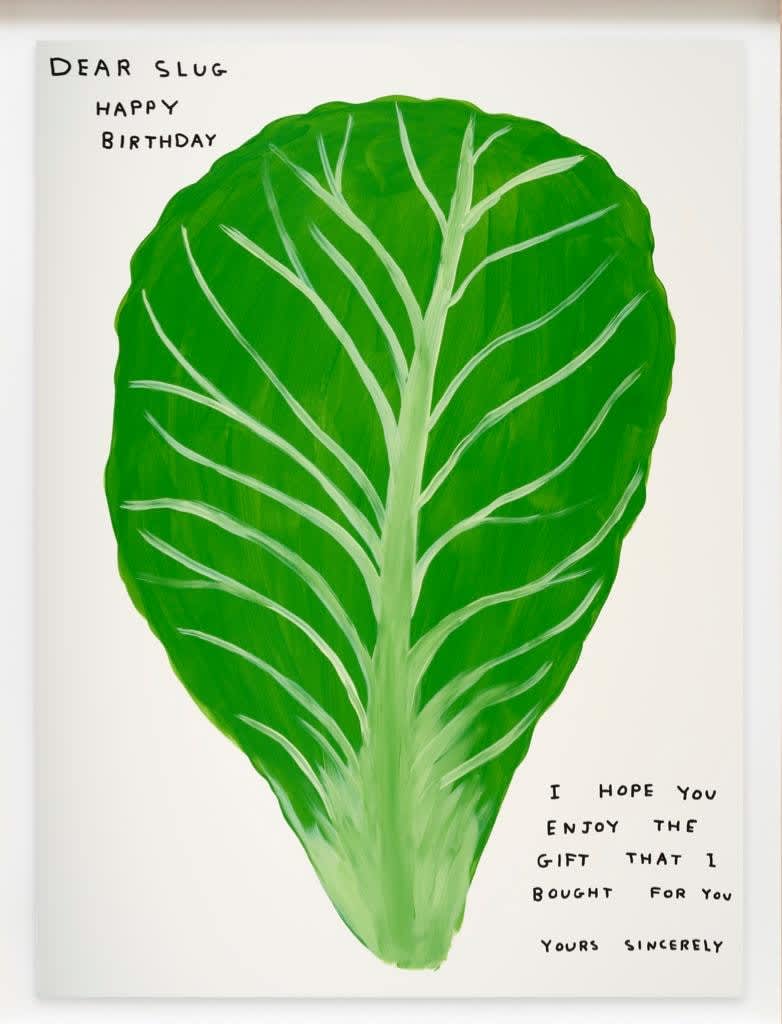 DEAR SLUG
HAPPY
BIRTHDAY
I HOPE YOU
ENJOY THE
GIFT THAT I
BOUGHT FOR YOU
YOURS SINCERELY